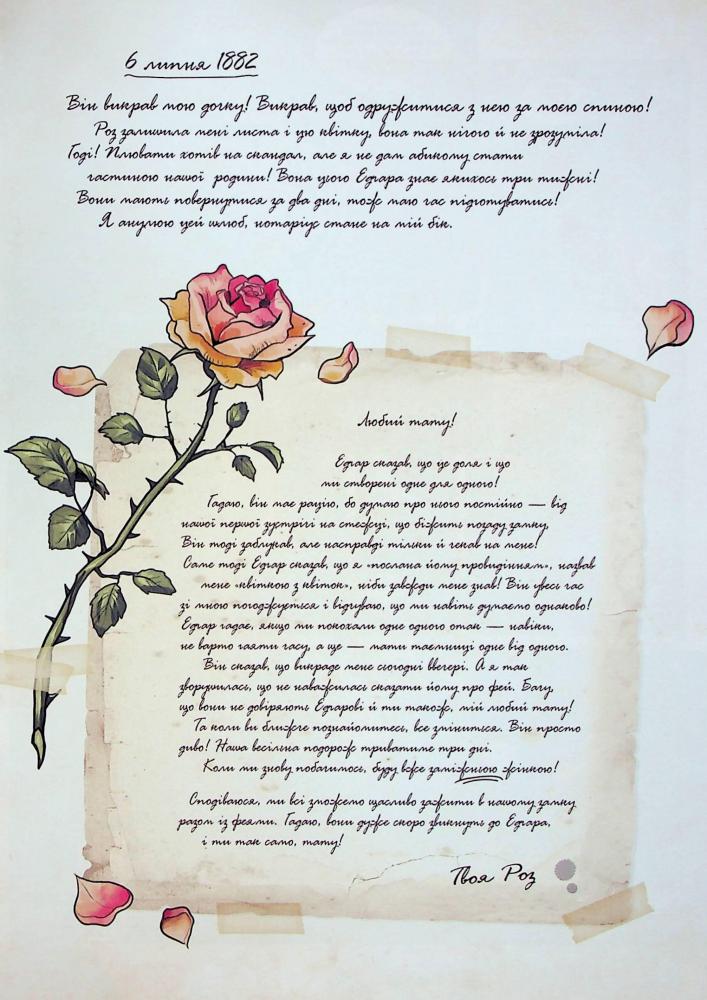 6 липня 1882
Він викрав мою дочку! Викрав, щоб одружитися з нею за моєю спиною!
Роз залишила мені листа і цю квітку, вона так нічого й не зрозуміла!
Годі! Плювати хотів на скандал, але я не дам абикому стати
частиною нашої родини! Вона цього Едґара знає якихось три тижні!
Вони мають повернутися за два дні, тож маю час підготуватись!
Я анулюю цей шлюб, нотаріус стане на мій бік.
Любий тату!
Едґар сказав, що це доля і що
ми створені одне для одного!
Гадаю, він має рацію, бо думаю про нього постійно — від
нашої першої зустрічі на стежці, що біжить позаду замку,
Він тоді заблукав, але насправді тільки й чекав на мене!
Саме тоді Едґар сказав, що я «послана йому провидінням», назвав
мене «квіткою з квіток», ніби завжди мене знав! Він увесь час
зі мною погоджується і відчуваю, що ми навіть думаємо однаково!
Едґар гадає, якщо ми покохали одне одного отак — навіки,
не варто гаяти часу, а ще — мати таємниці одне від одного.
Він сказав, що викраде мене сьогодні ввечері. А я так
зворушилась, що не наважилась сказати йому про фей. Бачу,
що вони не довіряють Едґарові й ти також, мій любий тату!
Та коли ви ближче познайомитесь, все зміниться. Він просто
диво! Наша весільна подорож триватиме три дні.
Коли ми знову побачимось, буду вже заміжньою жінкою!
Сподіваюся, ми всі зможемо щасливо зажити в нашому замку
разом із феями. Гадаю, вони дуже скоро звикнуть до Едґара,
і ти так само, тату!
Твоя Роз